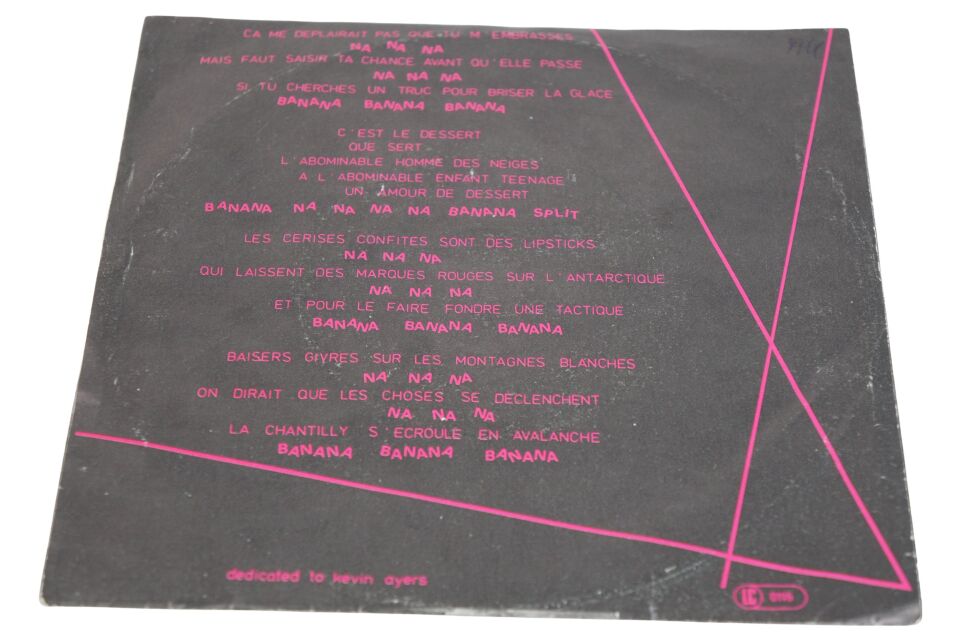 ÇA ME DEPLAIRAIT PAS QUE TU M'EMBRASSES
NA NA NA
MAIS FAUT SAISIR TA CHANCE AVANT QU'ELLE PASSE
NA NA NA
SI TU CHERCHES UN TRUC POUR BRISER LA GLACE
BANANA BANANA BANANA
C'EST LE DESSERT
QUE SERT
L'ABOMINABLE HOMME DES NEIGES
A L'ABOMINABLE ENFANT TEENAGE
UN AMOUR DE DESSERT
BANANA NA NA NA NA BANANA SPLIT
LES CERISES CONFITES SONT DES LIPSTICKS
NA NA NA
QUI LAISSENT DES MARQUES ROUGES SUR L'ANTARCTIQUE
NA NA NA
ET POUR LE FAIRE FONDRE UNE TACTIQUE
BANANA BANANA BANANA
BAISERS GIVRES SUR LES MONTAGNES BLANCHES
NA NA NA
ON DIRAIT QUE LES CHOSES SE DECLENCHENT
NA NA NA
LA CHANTILLY S'ECROULE EN AVALANCHE
BANANA BANANA BANANA
dedicated to kevin ayers
LC 0115